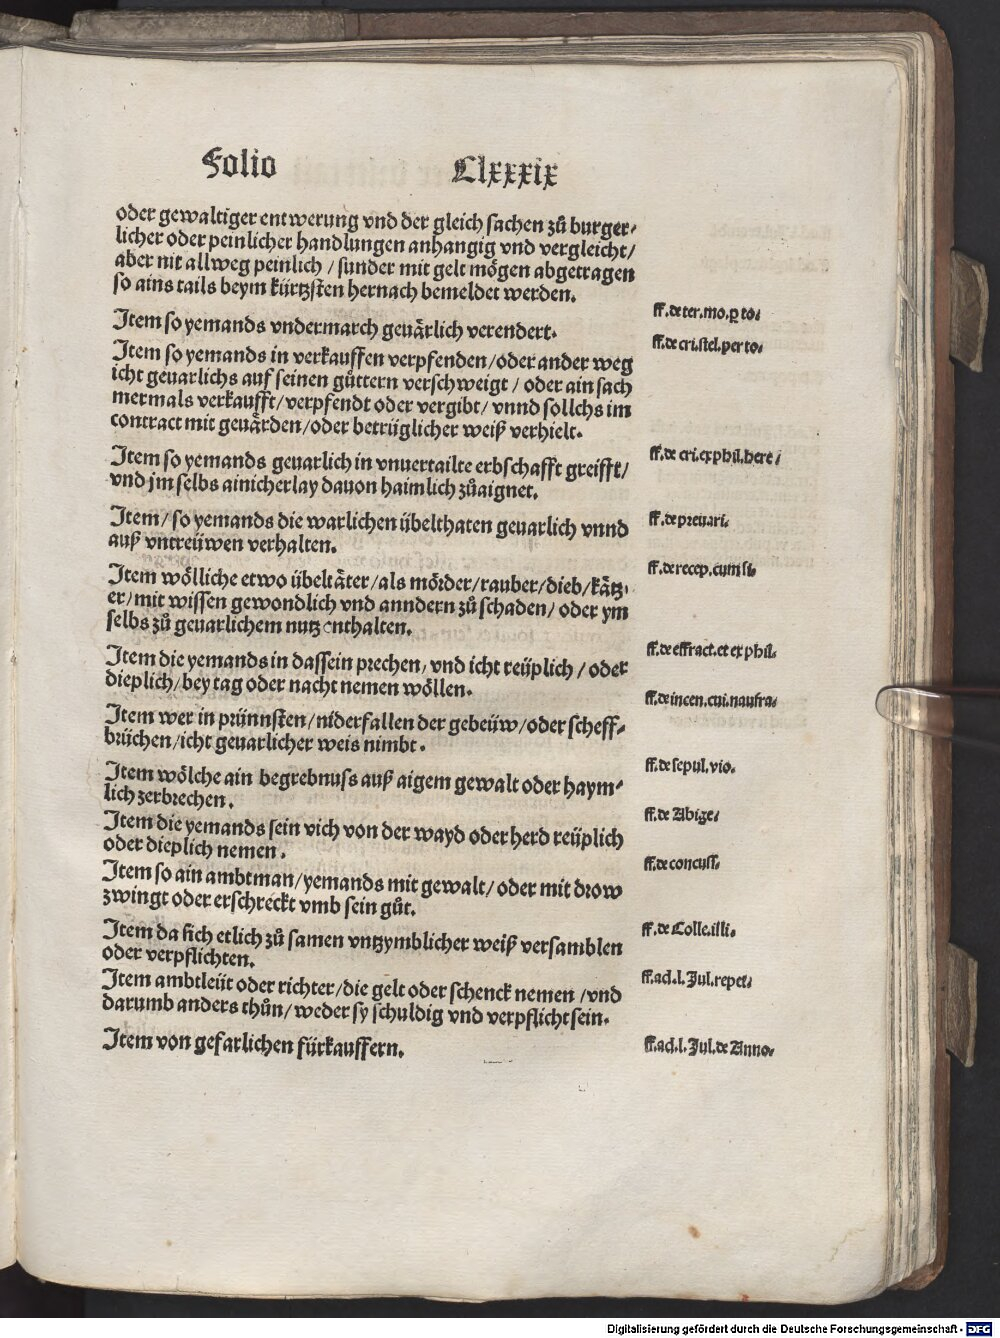 Folio Clxxxix
oder gewaltiger entwerung vnd der gleich sachen zů burger⸗
licher oder peinlicher handlungen anhangig vnd vergleicht/
aber nit allweg peinlich / sunder mit gelt mögen abgetragen
so ains tails beym kürtzsten hernach bemeldet werden.
ff.de ter.mo.ꝑ to.
Item so yemands vndermarch geuärlich verendert.
ff.de cri.stel.per to.
Item so yemands in verkauffen verpfenden/oder ander weg
icht geuarlichs auf seinen güttern verschweigt / oder ain sach
mermals verkaufft/verpfendt oder vergibt/ vnnd sollchs im
contract mit geuärden/oder betrüglicher weiß verhielt.
ff.de cri.expbil.here.
Item so yemands geuarlich in vnuertailte erbschafft greifft/
vnd jm selbs ainicherlay dauon haimlich zůaignet.
ff.de preuari.
Item/ so yemands die warlichen übelthaten geuarlich vnnd
auß vntreüwen verhalten.
ff.de recep.cum si.
Item wölliche etwo übeltäter/als mörder/rauber/dieb/kätz⸗
er/mit wissen gewondlich vnd anndern zů schaden/ oder ym
selbs zů geuarlichem nutz enthalten.
ff.de effract.et expbil.
Item die yemands in dassein prechen, vnd icht reüplich / oder
dieplich/bey tag oder nacht nemen wöllen.
ff.de incen.cui.naufra.
Item wer in prünnsten/niderfallen der gebeüw/oder scheff⸗
brüchen/icht geuarlicher weis nimbt.
ff.de sepul.vio.
Item wölche ain begrebnuss auß aigem gewalt oder haym⸗
lich zerbrechen.
ff.de Abige.
Item die yemands sein vich von der wayd oder herd reüplich
oder dieplich nemen.
ff.de concuss.
Item so ain ambtman/yemands mit gewalt/ oder mit drow
zwingt oder erschreckt vmb sein gůt.
ff.de Colle.illi.
Item da sich etlich zů samen vntzymblicher weiß versamblen
oder verpflichten.
ff.ad.l.Jul.repet.
Item ambtleüt oder richter/die gelt oder schenck nemen /vnd
darumb anders thůn/ weder sy schuldig vnd verpflicht sein.
ff.ad.l.Jul.de Anno.
Item von gefarlichen fürkauffern.
Digitalisierung gefördert durch die Deutsche Forschungsgemeinschaft - DFG